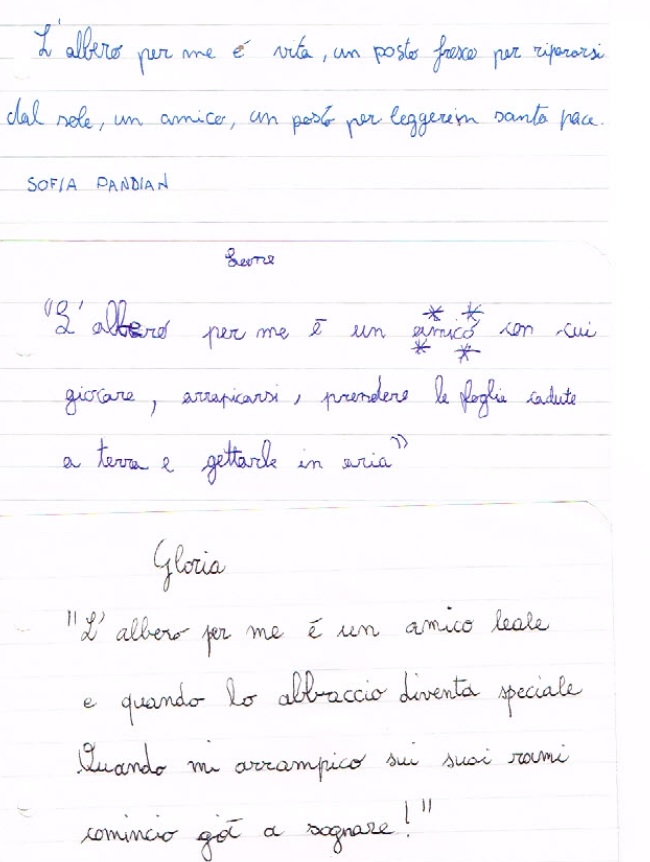 L'albero per me é vita, un posto fresco per ripararsi
dal sole, un amico, un posto per leggere in santa pace.
SOFIA PANDIAN
"L'albero per me é un amico con cui
giocare, arrapicarsi, prendere le foglie cadute
a terra e gettarle in aria"
Gloria
"L'albero per me é un amico leale
e quando lo abbraccio diventa speciale
Quando mi arrampico sui suoi rami
comincio giá a sognare!"